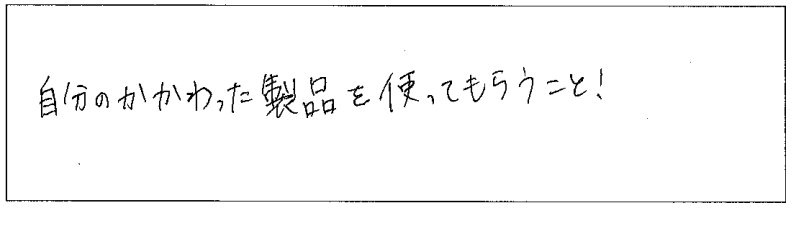 自分のかかわった製品を使ってもらうこと!